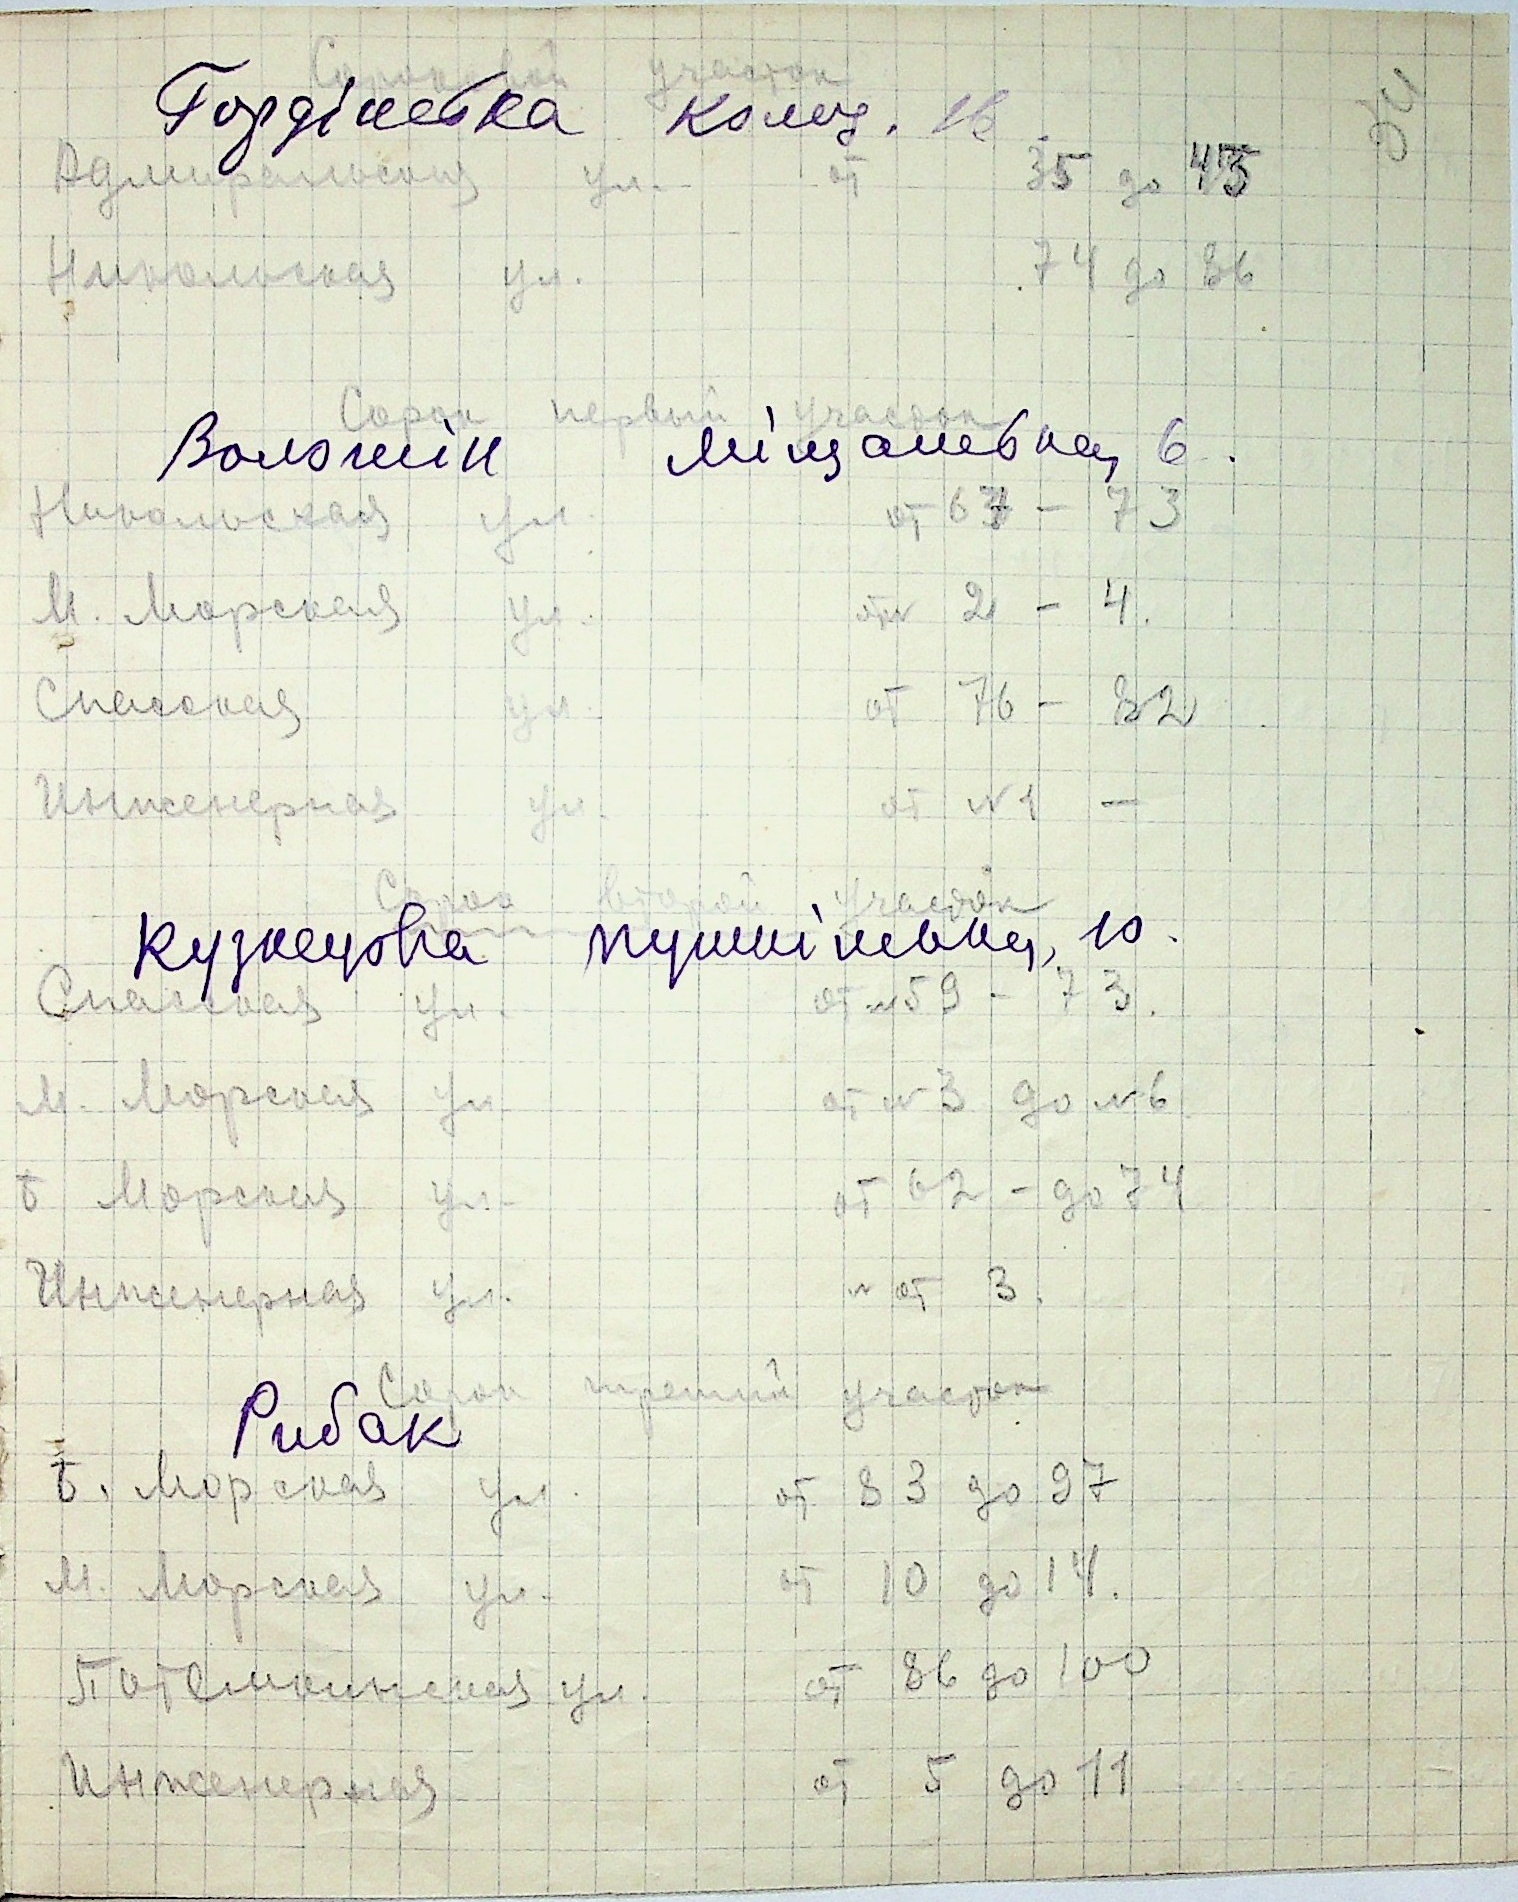 Сороковой участок
Гордієвска Колод. 16
Адмиральская ул. от 35 до 45
Никольская ул. 74 до 86
Сорок первый участок
Воложин Міщаневка, 6.
Никольская ул. от 67 - 73
М. Морская ул. от № 2 - 4.
Спасская ул. от 76 - 82
Инженерная ул. от №1 —
Сорок второй участок
Кузнецова Пушкінівка, 10.
Спасская ул. от №59 - 73.
М. Морская ул. от №3 до №6
Б Морская ул. от 62 - до 74
Инженерная ул. № от 3.
Сорок третий участок
Рибак
Б. Морская ул. от 83 до 97
М. Морская ул. от 10 до 14.
Потемкинская ул. от 86 до 100
Инженерная от 5 до 11